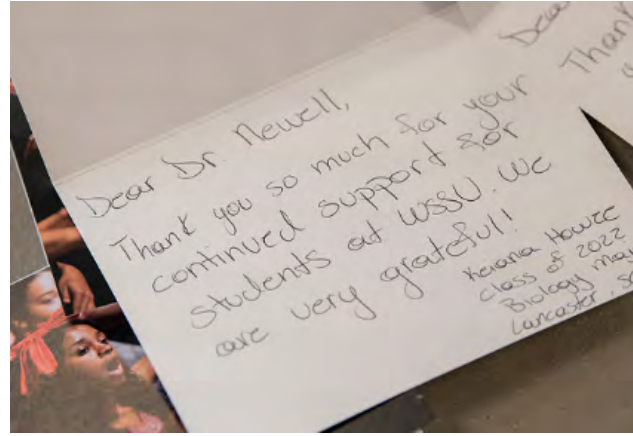 Dear Dr. Newell,
Thank you so much for your
continued support for
students at WSSU. We
are very grateful!
Keiana Howze
Class of 2022
Biology Maj
Lancaster, SC
Dear
Thank